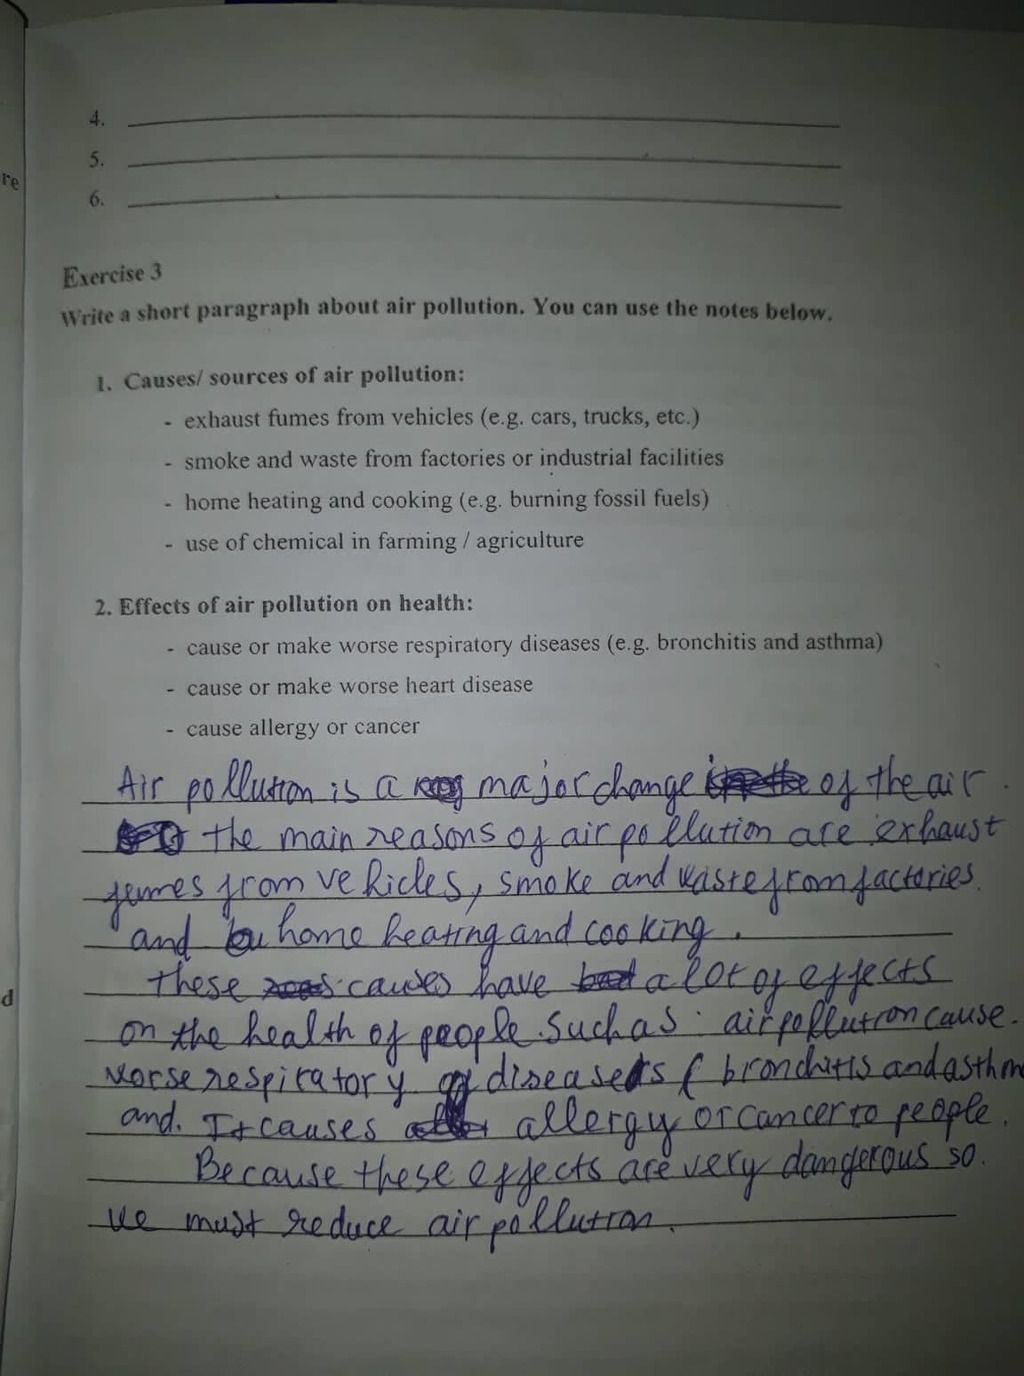 re
4.
5.
6.
Exercise 3
Write a short paragraph about air pollution. You can use the notes below.
1. Causes/ sources of air pollution:
- exhaust fumes from vehicles (e.g. cars, trucks, etc.)
- smoke and waste from factories or industrial facilities
- home heating and cooking (e.g. burning fossil fuels)
- use of chemical in farming / agriculture
2. Effects of air pollution on health:
- cause or make worse respiratory diseases (e.g. bronchitis and asthma)
- cause or make worse heart disease
- cause allergy or cancer
Air pollution is a major change of the air.
the main reasons of air pollution are exhaust
fumes from vehicles, smoke and waste from factories.
and home heating and cooking.
d
these causes have a lot of effects
on the health of people. Such as: air pollution cause.
worse respiratory diseases ( bronchitis and asthm
and. It causes allergy or cancer to people.
Because these effects are very dangerous so.
we must reduce air pollution.